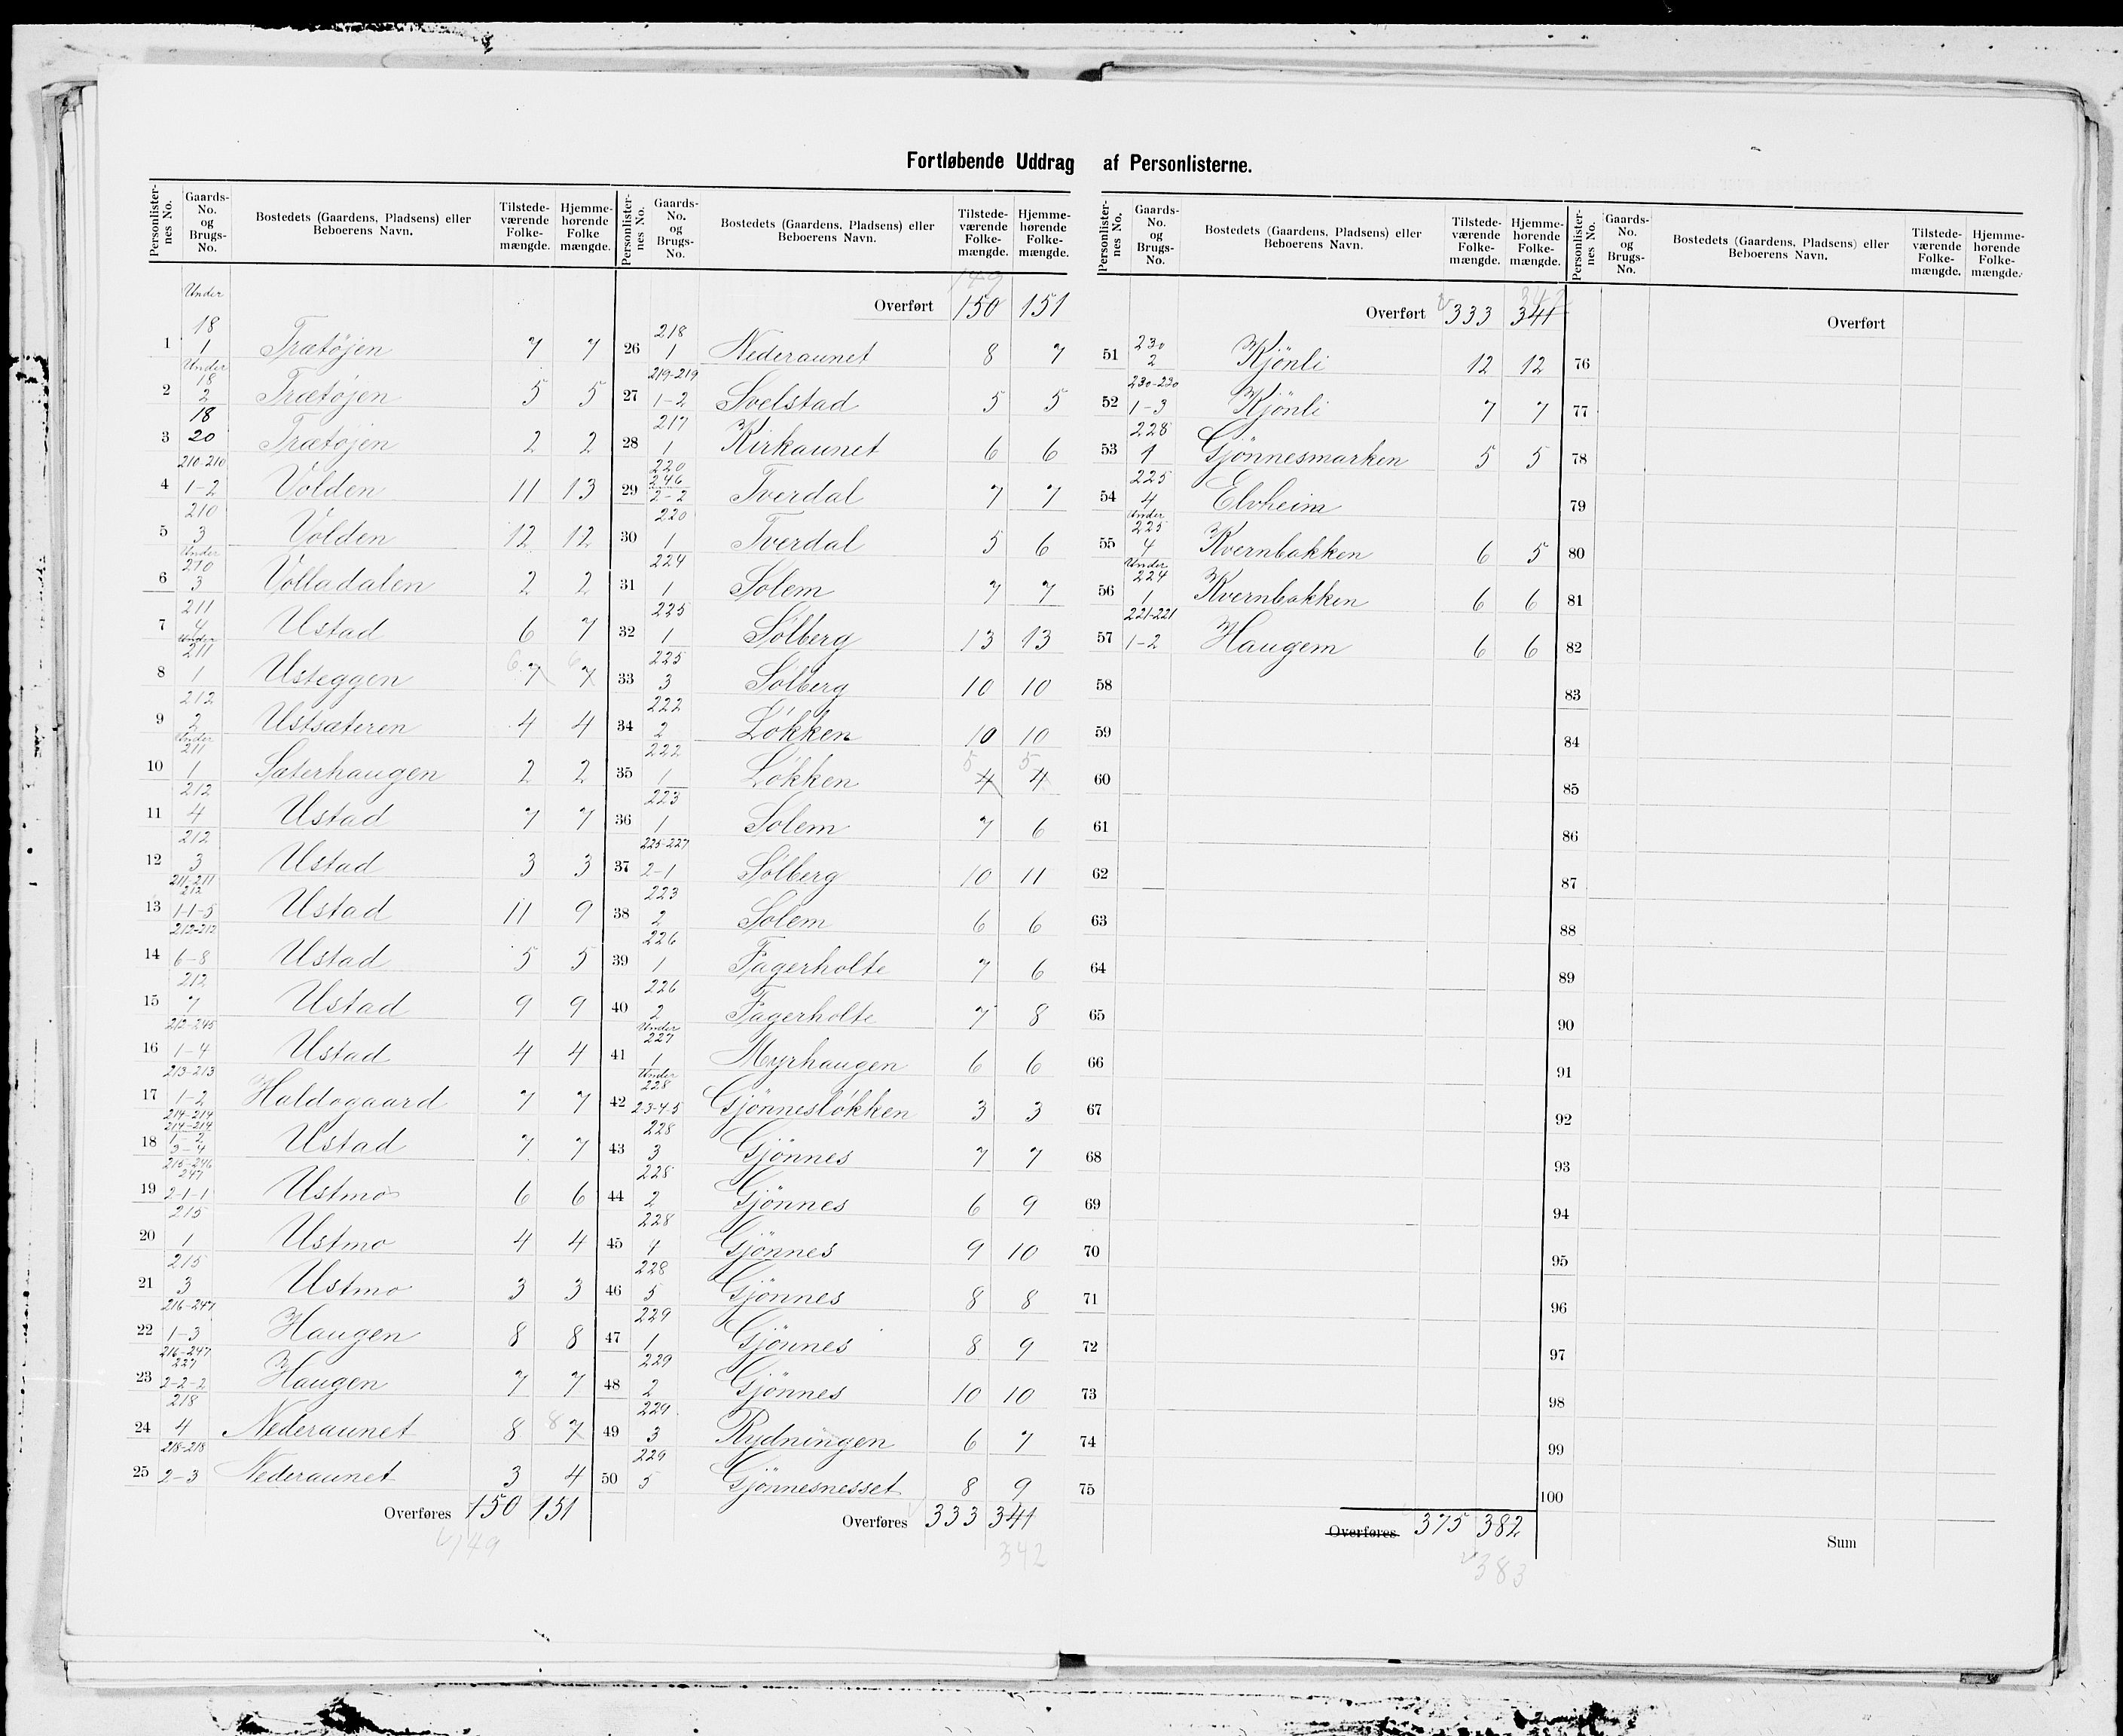 Fortløbende Uddrag af Personlisterne.
Personlister-nes No. Gaards-No. og Brugs-No. Bostedets (Gaardens, Pladsens) eller Beboerens Navn. Tilstede-værende Folke-mængde. Hjemme-hørende Folke mængde.
Under
18
1 1 Trætöjen 7 7
Under 18
2 2 Trætöjen 5 5
18
3 20 Trætöjen 2 2
210-210
4 1-2 Volden 11 13
210
5 3 Volden 12 12
Under 210
6 3 Volladalen 2 2
211
7 4 Ustad 6 7
Under 211
8 1 Usteggen 6 7 6 7
212
9 2 Ustsæteren 4 4
Under 211
10 1 Sæterhaugen 2 2
212
11 4 Ustad 7 7
212
12 3 Ustad 3 3
211-211
212
13 1-1-5 Ustad 11 9
212-212
14 6-8 Ustad 5 5
212
15 7 Ustad 9 9
212-245
16 1-4 Ustad 4 4
213-213
17 1-2 Haldogaard 7 7
214-214
214-214
1-2
18 3-4 Ustad 7 7
215-246
247
19 2-1-1 Ustmo 6 6
215
20 1 Ustmo 4 4
215
21 3 Ustmo 3 3
216-247
22 1-3 Haugen 8 8
216-247
227
23 2-2-2 Haugen 7 7
218
24 4 Nederaunet 8 8 7
218-218
25 2-3 Nederaunet 3 4
Overføres 150 151
149
Personlister-nes No. Gaards-No. og Brugs-No. Bostedets (Gaardens, Pladsens) eller Beboerens Navn. Tilstede-værende Folke-mængde. Hjemme-hørende Folke-mængde.
149
Overført 150 151
218
26 1 Nederaunet 8 7
219-219
27 1-2 Svelstad 5 5
217
28 1 Kirkaunet 6 6
220
246
29 2-2 Tverdal 7 7
220
30 1 Tverdal 5 6
224
31 1 Solem 7 7
225
32 1 Sölberg 13 13
225
33 3 Sölberg 10 10
222
34 2 Lökken 10 10
222
35 1 Lökken 5 4 5 4
223
36 1 Solem 7 6
225-227
37 2-1 Sölberg 10 11
223
38 2 Solem 6 6
226
39 1 Fagerholte 7 6
226
40 2 Fagerholte 7 8
Under 227
41 1 Myrhaugen 6 6
Under 228
42 2-3-4-5 Gjönneslökken 3 3
228
43 3 Gjönnes 7 7
228
44 2 Gjönnes 6 9
228
45 4 Gjönnes 9 10
228
46 5 Gjönnes 8 8
229
47 1 Gjönnes 8 9
229
48 2 Gjönnes 10 10
229
49 3 Rydningen 6 7
229
50 5 Gjönnesnesset 8 9
Overføres 333 341
342
Personlister-nes No. Gaards-No. og Brugs-No. Bostedets (Gaardens, Pladsens) eller Beboerens Navn. Tilstede-værende Folke-mængde. Hjemme-hørende Folke-mængde.
342
Overført 333 341
230
51 2 Kjönli 12 12
230-230
52 1-3 Kjönli 7 7
228
53 1 Gjönnesmarken 5 5
225
54 4 Elvheim
Under 225
55 4 Kvernbakken 6 5
Under 224
56 1 Kvernbakken 6 6
221-221
57 1-2 Haugem 6 6
58
59
60
61
62
63
64
65
66
67
68
69
70
71
72
73
74
75
Overføres 375 382
383
Personlister-nes No. Gaards-No. og Brugs-No. Bostedets (Gaardens, Pladsens) eller Beboerens Navn. Tilstede-værende Folke-mængde. Hjemme-hørende Folke-mængde.
Overført
76
77
78
79
80
81
82
83
84
85
86
87
88
89
90
91
92
93
94
95
96
97
98
99
100
Sum